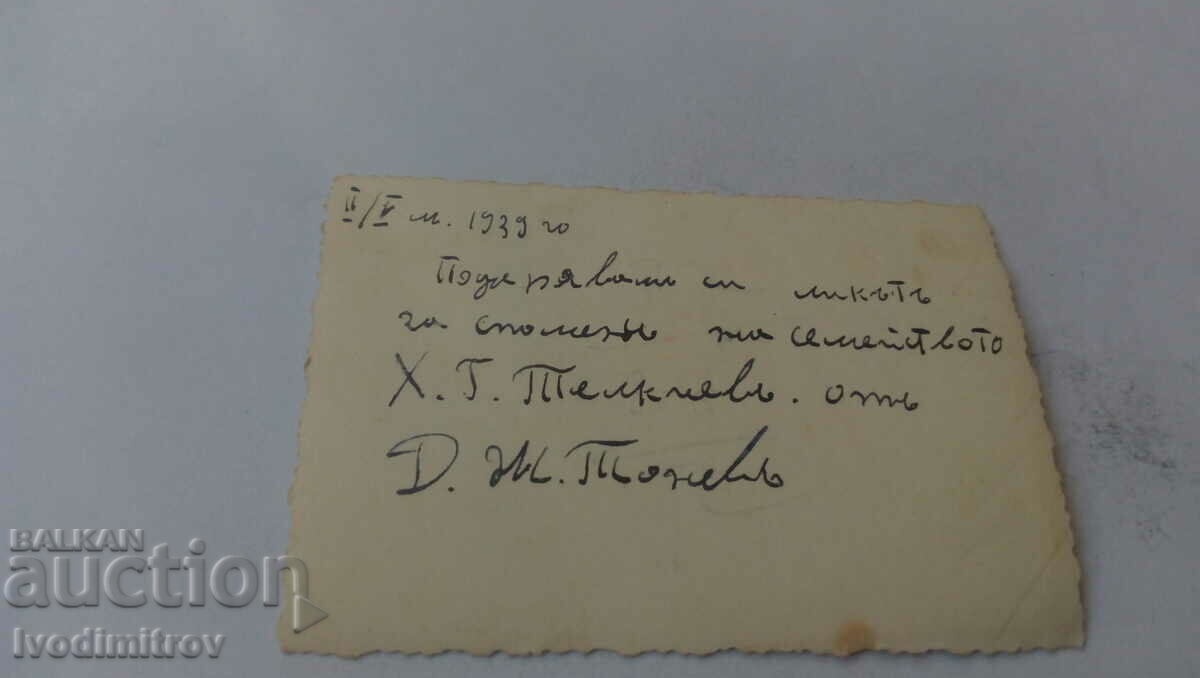 II/V м. 1939 го
Подарявамъ си ликътъ
за споменъ на семейството
Х. Г. Телкиевъ. отъ
Д. Ж. Тоневъ
BALKAN
auction
Ivodimitrov